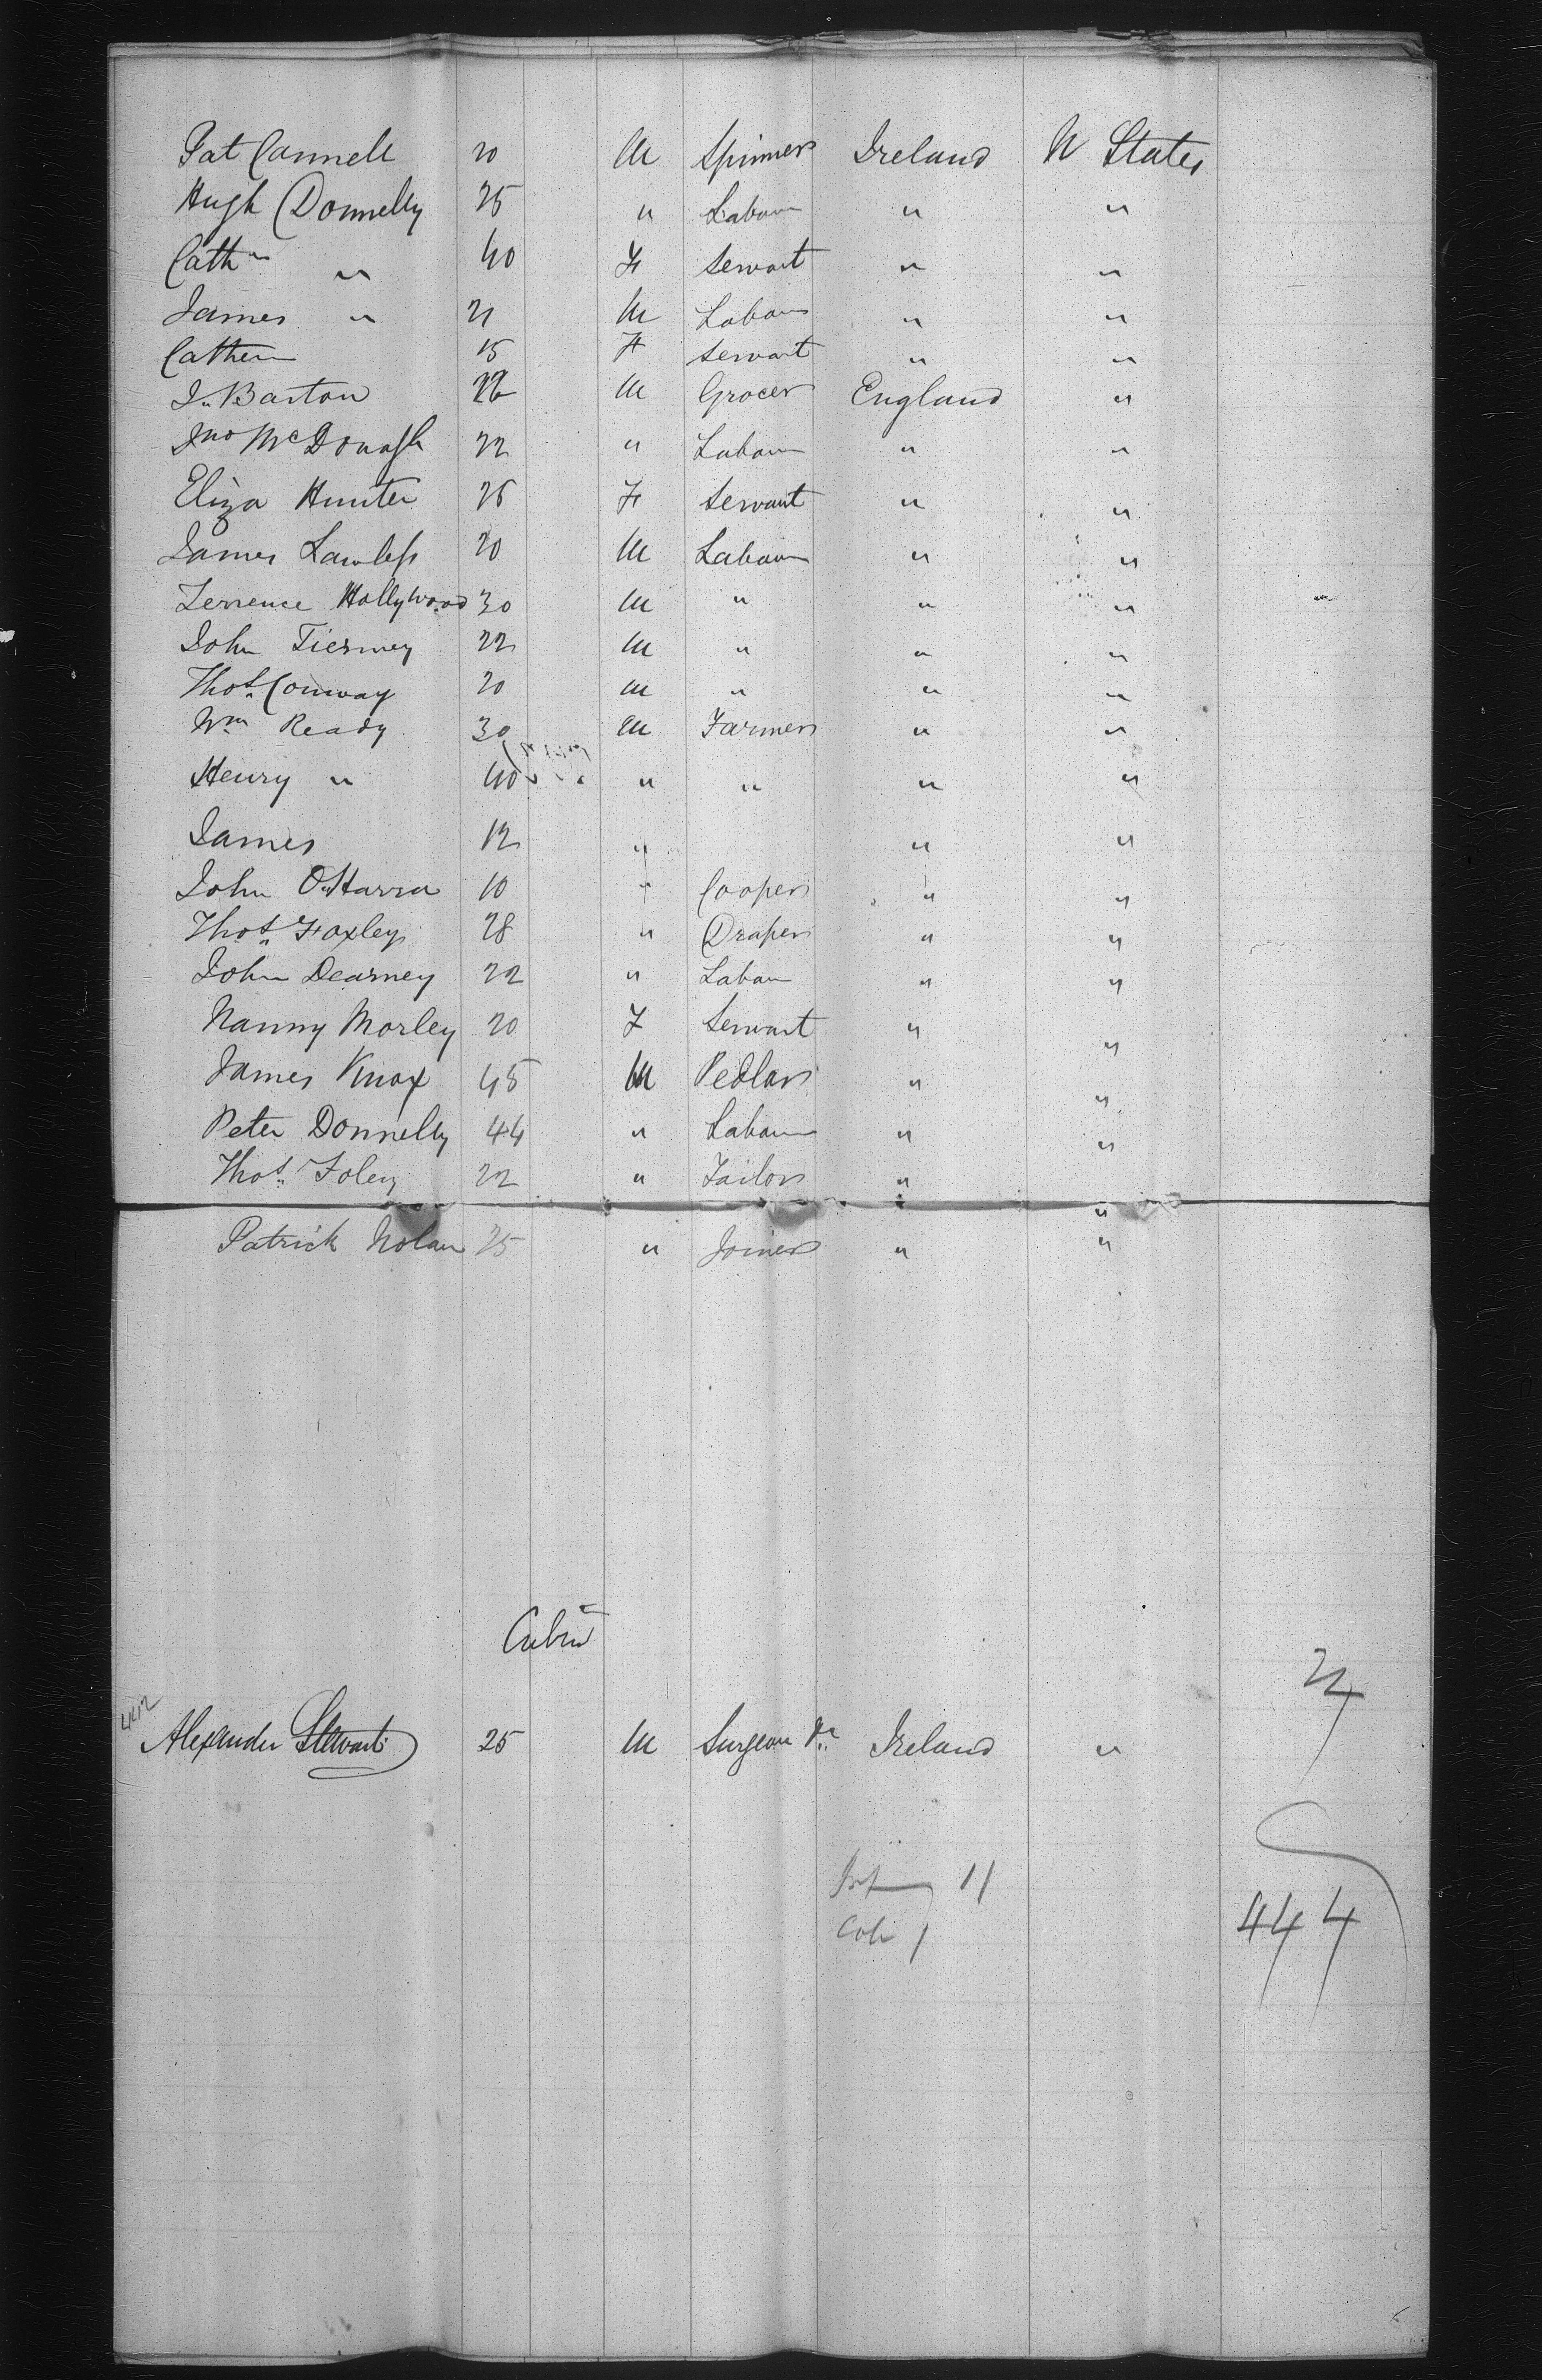 Pat Connell 20 M Spinner Ireland U States
Hugh Donnelly 25 " Labour " "
Cath " 40 F Servant " "
James " 21 M Labour " "
Cathern 15 F Servant " "
J. Barton 22 M Grocer England "
Jno McDonagh 22 " Labour " "
Eliza Hunter 26 F Servant " "
James Lawless 20 M Labour " "
Terrence Hollywood 30 M " " "
John Tierney 22 M " " "
Thos. Conway 20 M " " "
Wm Ready 30 M Farmer " "
Henry " 40 " " " "
James 12 " " "
John O'Harra 10 " Cooper " "
Thos. Foxley 28 " Draper " "
John Dearney 22 " Labour " "
Nanny Morley 20 F Servant " "
James Knox 45 M Pedlar " "
Peter Donnelly 44 " Labour " "
Thos. Foley 22 " Tailor " "
Patrick Nolan 25 " Joiner " "
Cabin
24
442
Alexander Stewart 25 M Surgeon Ireland "
11
444